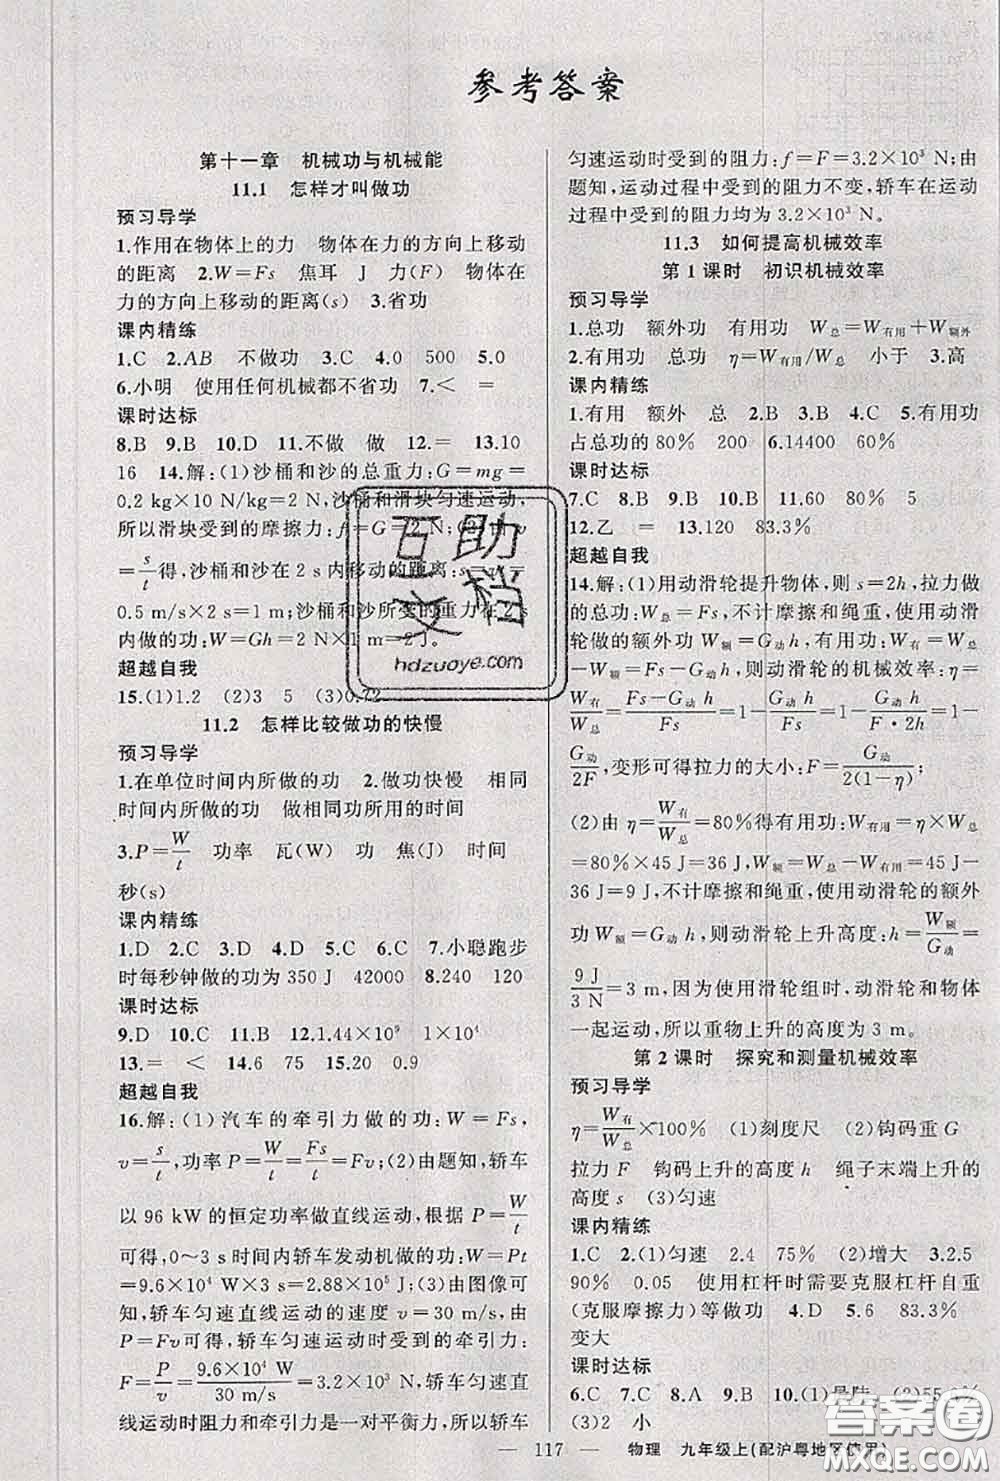 参考答案
第十一章 机械功与机械能
11.1 怎样才叫做功
预习导学
1.作用在物体上的力 物体在力的方向上移动
的距离 2.W=Fs 焦耳 J 力(F) 物体在
力的方向上移动的距离(s) 3.省功
课内精练
1.C 2.AB 不做功 3.C 4.0 500 5.0
6.小明 使用任何机械都不省功 7.< =
课时达标
8.B 9.B 10.D 11.不做 做 12.= 13.10
16 14.解:(1)沙桶和沙的总重力:G=mg=
0.2 kg×10 N/kg=2 N,沙桶和滑块匀速运动,
所以滑块受到的摩擦力:f=G=2 N;(2)由v
=s/t得,沙桶和沙在2 s内移动的距离:s=vt=
0.5 m/s×2 s=1 m;沙桶和沙所受的重力在2 s
内做的功:W=Gh=2 N×1 m=2 J。
超越自我
15.(1)1.2 (2)3 5 (3)0.72
11.2 怎样比较做功的快慢
预习导学
1.在单位时间内所做的功 2.做功快慢 相同
时间内所做的功 做相同功所用的时间
3.P=W/t 功率 瓦(W) 功 焦(J) 时间
秒(s)
课内精练
1.D 2.C 3.D 4.D 5.C 6.C 7.小聪跑步
时每秒钟做的功为350 J 42000 8.240 120
课时达标
9.D 10.C 11.B 12.1.44×10⁹ 1×10⁴
13.= < 14.6 75 15.20 0.9
超越自我
16.解:(1)汽车的牵引力做的功:W=Fs,
v=s/t,功率P=W/t=Fs/t=Fv;(2)由题知,轿车
以96 kW的恒定功率做直线运动,根据P=W/t
可得,0~3 s时间内轿车发动机做的功:W=Pt
=9.6×10⁴ W×3 s=2.88×10⁵ J;(3)由图像可
知,轿车匀速直线运动的速度v=30 m/s,由
P=Fv可得,轿车匀速运动时受到的牵引力:
F=P/v=9.6×10⁴ W/30 m/s=3.2×10³ N,轿车匀速直
线运动时阻力和牵引力是一对平衡力,所以轿车
匀速运动时受到的阻力:f=F=3.2×10³ N;由
题知,运动过程中受到的阻力不变,轿车在运动
过程中受到的阻力均为3.2×10³ N。
11.3 如何提高机械效率
第1课时 初识机械效率
预习导学
1.总功 额外功 有用功 W总=W有用+W额外
2.有用功 总功 η=W有用/W总 小于 3.高
课内精练
1.有用 额外 总 2.B 3.B 4.C 5.有用功
占总功的80% 200 6.14400 60%
课时达标
7.C 8.B 9.B 10.B 11.60 80% 5
12.乙 = 13.120 83.3%
超越自我
14.解:(1)用动滑轮提升物体,则s=2h,拉力做
的总功:W总=Fs,不计摩擦和绳重,使用动滑
轮做的额外功W额=G动h,有用功:W有用=W总
-W额=Fs-G动h,则动滑轮的机械效率:η=
W有/W总=Fs-G动h/Fs=1-G动h/Fs=1-G动h/F·2h=1-
G动/2F,变形可得拉力的大小:F=G动/2(1-η);
(2)由η=W有/W总=80%得有用功:W有用=η×W总
=80%×45 J=36 J,W额=W总-W有用=45 J-
36 J=9 J,不计摩擦和绳重,使用动滑轮的额外
功W额=G动h,则动滑轮上升高度:h=W额/G动=
9 J/3 N=3 m,因为使用滑轮组时,动滑轮和物体
一起运动,所以重物上升的高度为3 m。
第2课时 探究和测量机械效率
预习导学
η=W有/W总×100% (1)刻度尺 (2)钩码重G
拉力F 钩码上升的高度h 绳子末端上升的
高度s (3)匀速
课内精练
1.C 2.(1)匀速 2.4 75% (2)增大 3.2.5
90% 0.05 使用杠杆时需要克服杠杆自重
(克服摩擦力)等做功 4.D 5.6 83.3%
变大
课时达标
6.C 7.C 8.A 9.B 10.(1)
(3)2 小
— 117 — 物理 九年级上(配沪粤地区使用)
互助
文档
hdzuoye.com
答案圈